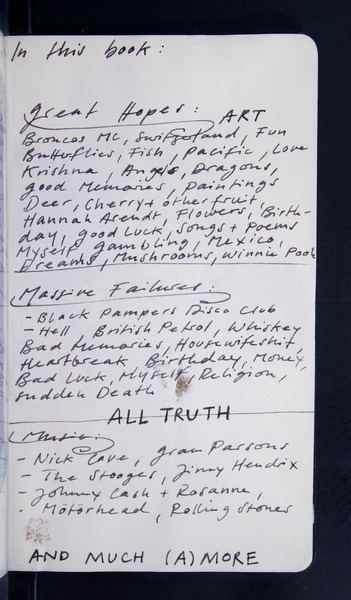 In this book:
Great Hopes: ART
Broncos MC, Switzerland, Fun
Butterflies, Fish, Pacific, Love
Krishna, Angels, Dragons,
good Memories, Paintings
Deer, Cherry + other fruit,
Hannah Arendt, Flowers, Birth-
day, good Luck, Songs + Poems
Myself gambling, Mexico,
Dreams, Mushrooms, Winnie Pooh
Massive Failures:
- Black Pampers Disco Club
- Hell, British Petrol, Whiskey
Bad Memories, Housewifeshit,
Heartbreak Birthday, Money,
Bad Luck, Myself, Religion,
sudden Death
ALL TRUTH
Music:
- Nick Cave, Gram Parsons
- The Stooges, Jimy Hendrix
- Johnny Cash + Rosanne,
- Mötörhead, Rolling Stones
AND MUCH (A) MORE